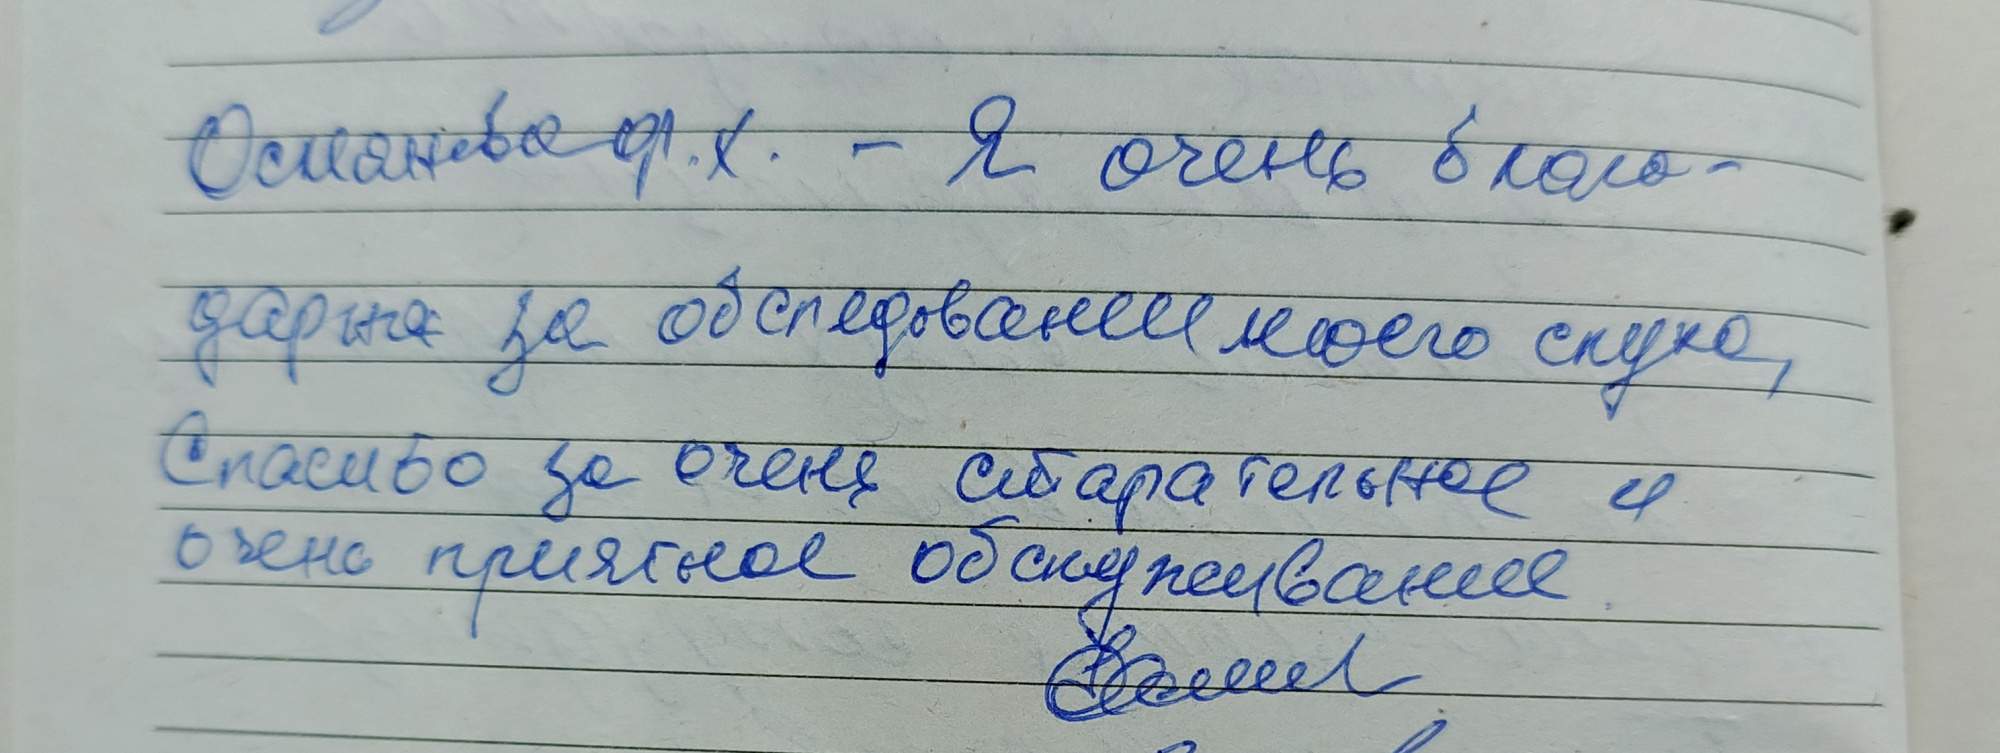 Османова Ф.Х. - Я очень благо-
дарна за обследование моего слуха,
Спасибо за очень старательное и
очень приятное обслуживание.